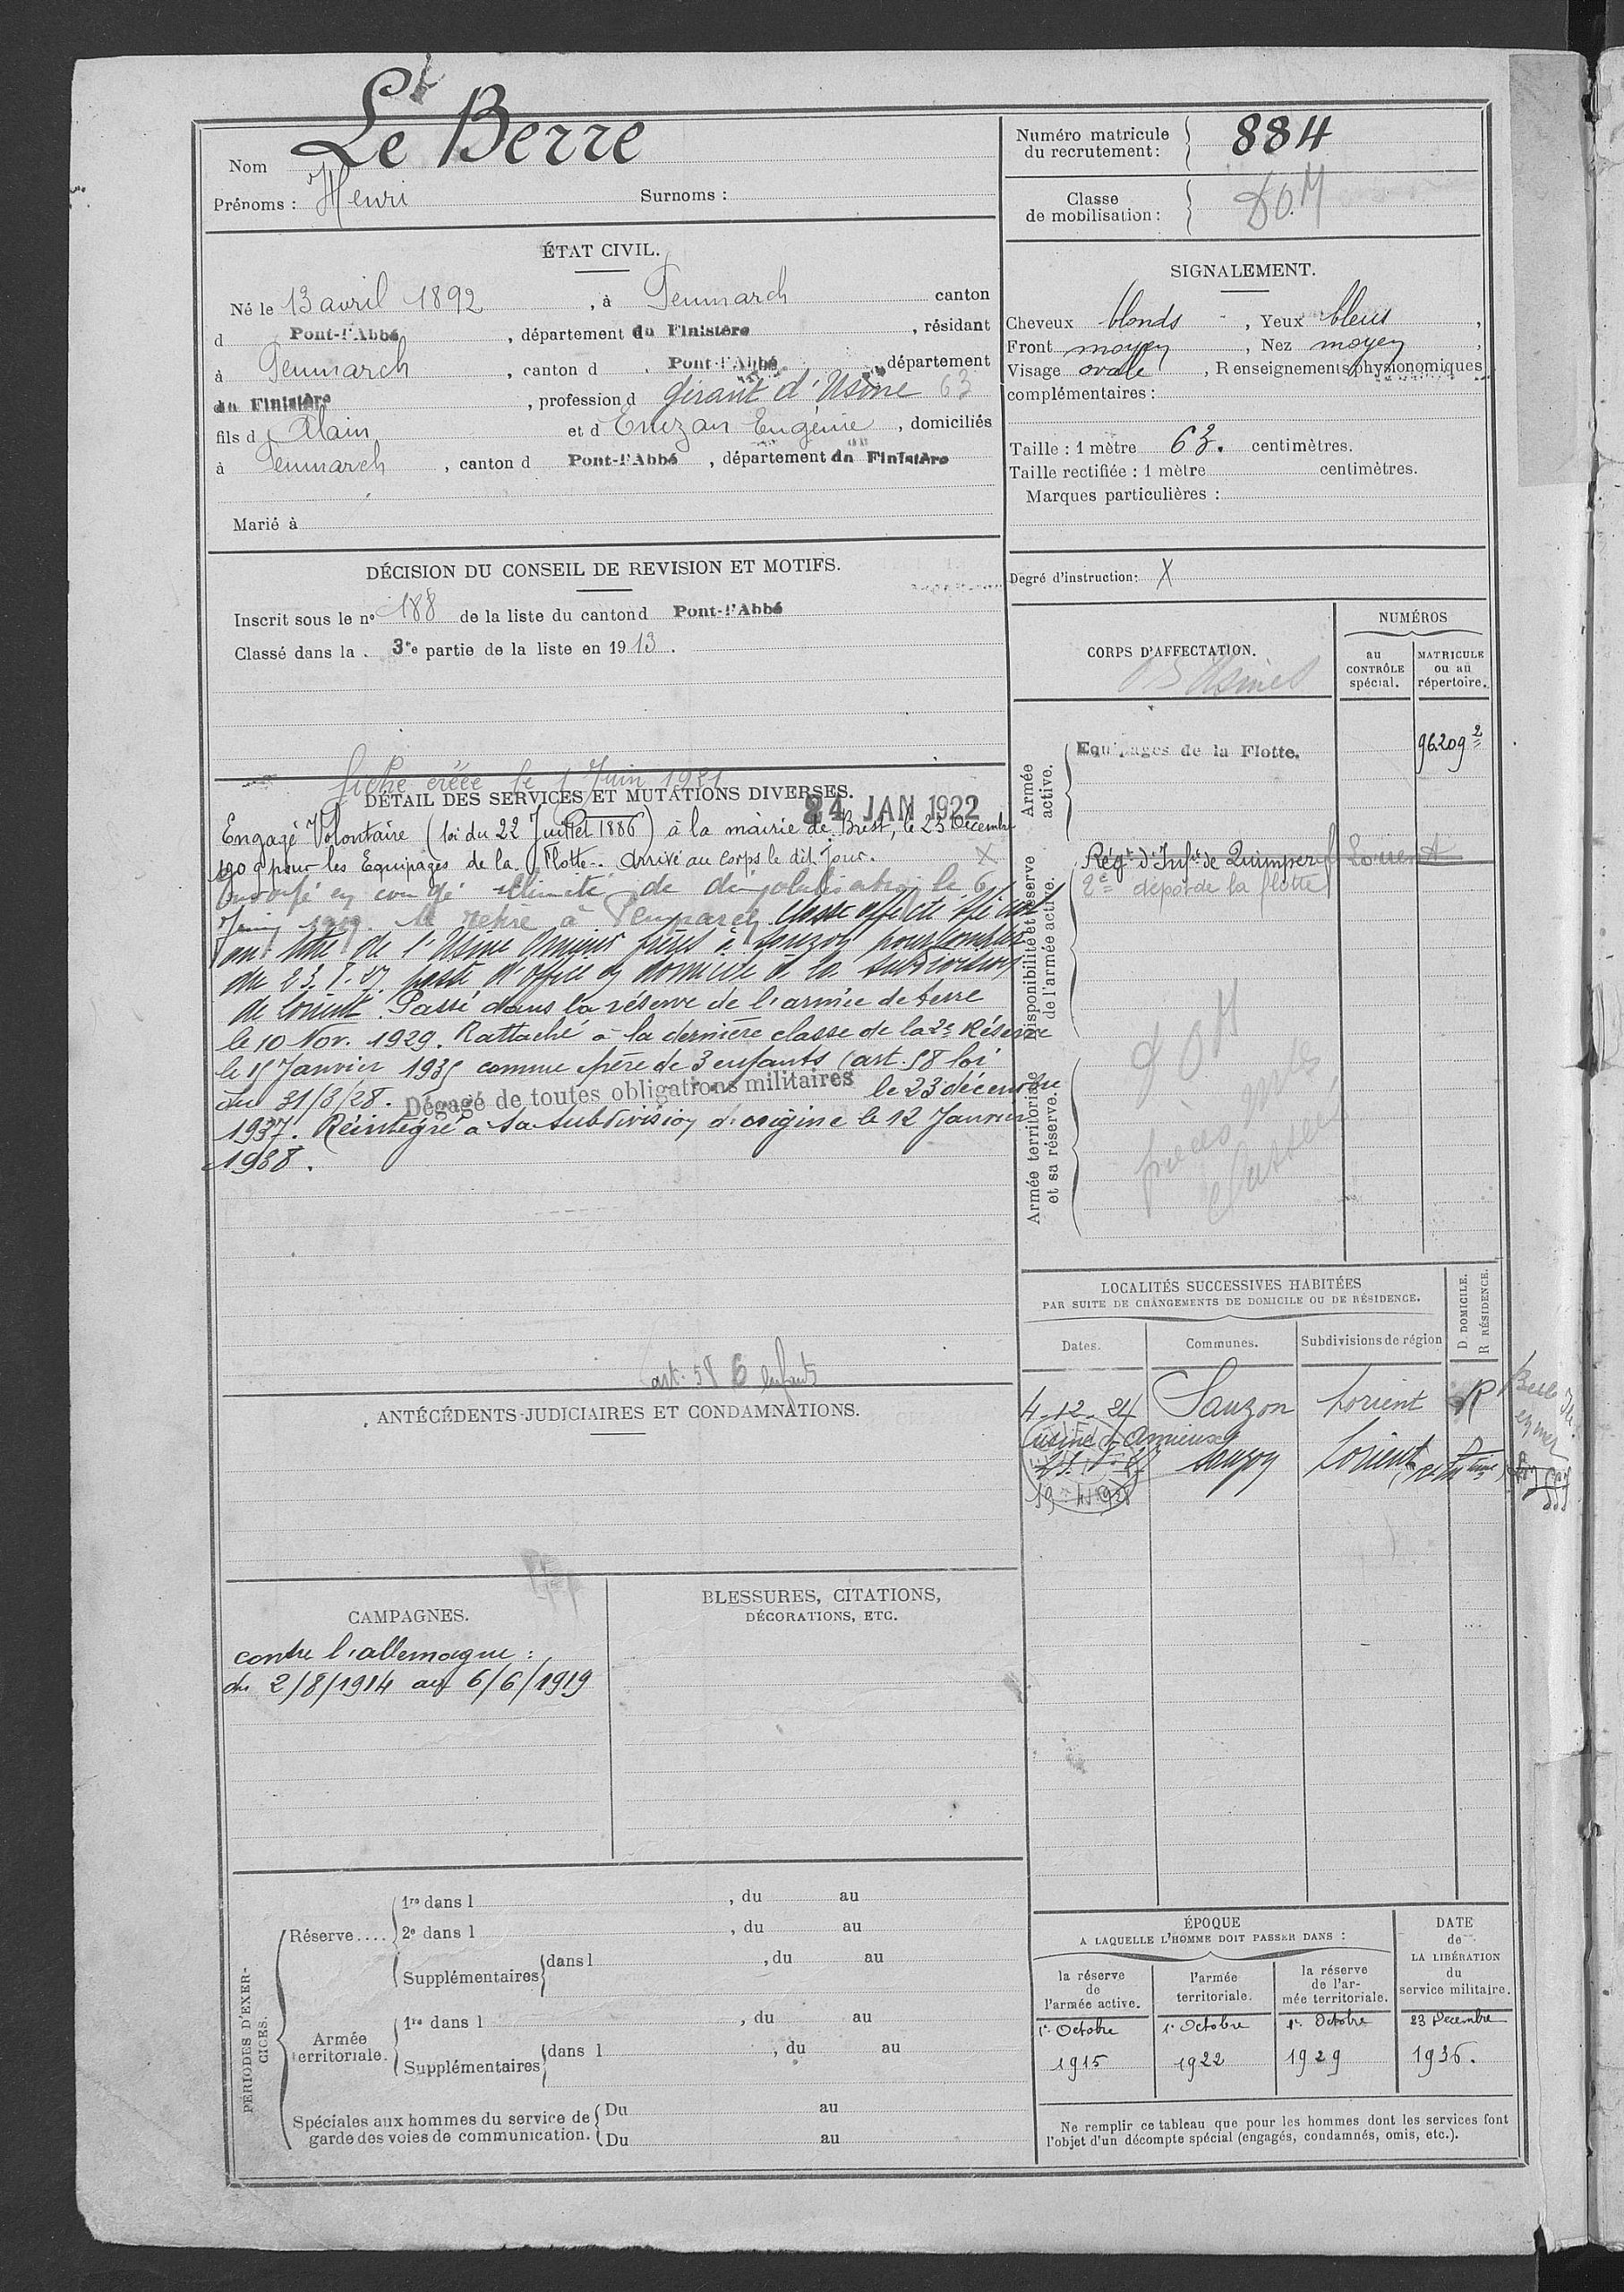 Nom Le Berre
Prénoms : Henri Surnoms :
Numéro matricule du recrutement : 884
Classe de mobilisation : DOM
ÉTAT CIVIL.
Né le 13 avril 1892, à Penmarch canton
d Pont-l'Abbé, département du Finistère, résidant
à Penmarch, canton d Pont-l'Abbé département
du Finistère, profession d gérant d'Usine 63
fils d Alain et d Enizan Eugénie, domiciliés
à Penmarch, canton d Pont-l'Abbé, département du Finistère
Marié à
SIGNALEMENT.
Cheveux blonds, Yeux bleus,
Front moyen, Nez moyen,
Visage ovale, Renseignements physionomiques
complémentaires :
Taille : 1 mètre 63. centimètres.
Taille rectifiée : 1 mètre centimètres.
Marques particulières :
Degré d'instruction : X
DÉCISION DU CONSEIL DE REVISION ET MOTIFS.
Inscrit sous le n° 188 de la liste du canton d Pont-l'Abbé
Classé dans la 3e partie de la liste en 1913.
fiche créée le 1 Juin 1931
DÉTAIL DES SERVICES ET MUTATIONS DIVERSES.
24 JAN 1922
Engagé Volontaire (loi du 22 Juillet 1886) à la mairie de Brest, le 23 Décembre
1909 pour les Equipages de la Flotte. Arrivé au corps le dit jour. X
Envoyé en congé illimité de démobilisation le 6
Juin 1919. Se retire à Penmarch Classé affecté spécial
au titre de l'Usine Amieux frères à Sauzon pour compter
du 23.8.27. passé d'office en domicile à la subdivision
de Lorient. Passé dans la réserve de l'armée de terre
le 10 Nov. 1929. Rattaché à la dernière classe de la 2e Réserve
le 15 Janvier 1935 comme père de 3 enfants (art. 58 loi
du 31/3/28. Dégagé de toutes obligations militaires le 23 décembre
1937. Réintégré à sa subdivision d'origine le 12 Janvier
1938.
art. 58 6 enfants
CORPS D'AFFECTATION.
NUMÉROS
au CONTRÔLE spécial.
MATRICULE ou au répertoire.
Armée active.
Equipages de la Flotte. 96.209 2
Disponibilité et réserve de l'armée active.
Régt d'Infie de Quimper Lorient
2e dépôt de la flotte
DOM
Armée territoriale et sa réserve.
LOCALITÉS SUCCESSIVES HABITÉES
PAR SUITE DE CHANGEMENTS DE DOMICILE OU DE RÉSIDENCE.
Dates. Communes. Subdivisions de région D DOMICILE. R RÉSIDENCE.
4-12-24 Sauzon Lorient R Belle Ile en mer
(usine Amieux)
Sauzon Lorient
ANTÉCÉDENTS JUDICIAIRES ET CONDAMNATIONS.
CAMPAGNES.
contre l'allemagne :
du 2/8/1914 au 6/6/1919
BLESSURES, CITATIONS,
DÉCORATIONS, ETC.
PÉRIODES D'EXERCICES.
Réserve....
1re dans l , du au
2e dans l , du au
Supplémentaires dans l , du au
Armée territoriale.
1re dans l , du au
Supplémentaires dans l , du au
Spéciales aux hommes du service de garde des voies de communication.
Du au
Du au
ÉPOQUE
A LAQUELLE L'HOMME DOIT PASSER DANS :
la réserve de l'armée active.
l'armée territoriale.
la réserve de l'armée territoriale.
DATE de LA LIBÉRATION du service militaire.
1er Octobre 1er Octobre 1er Octobre 23 Décembre
1915 1922 1929 1936.
Ne remplir ce tableau que pour les hommes dont les services font
l'objet d'un décompte spécial (engagés, condamnés, omis, etc.).